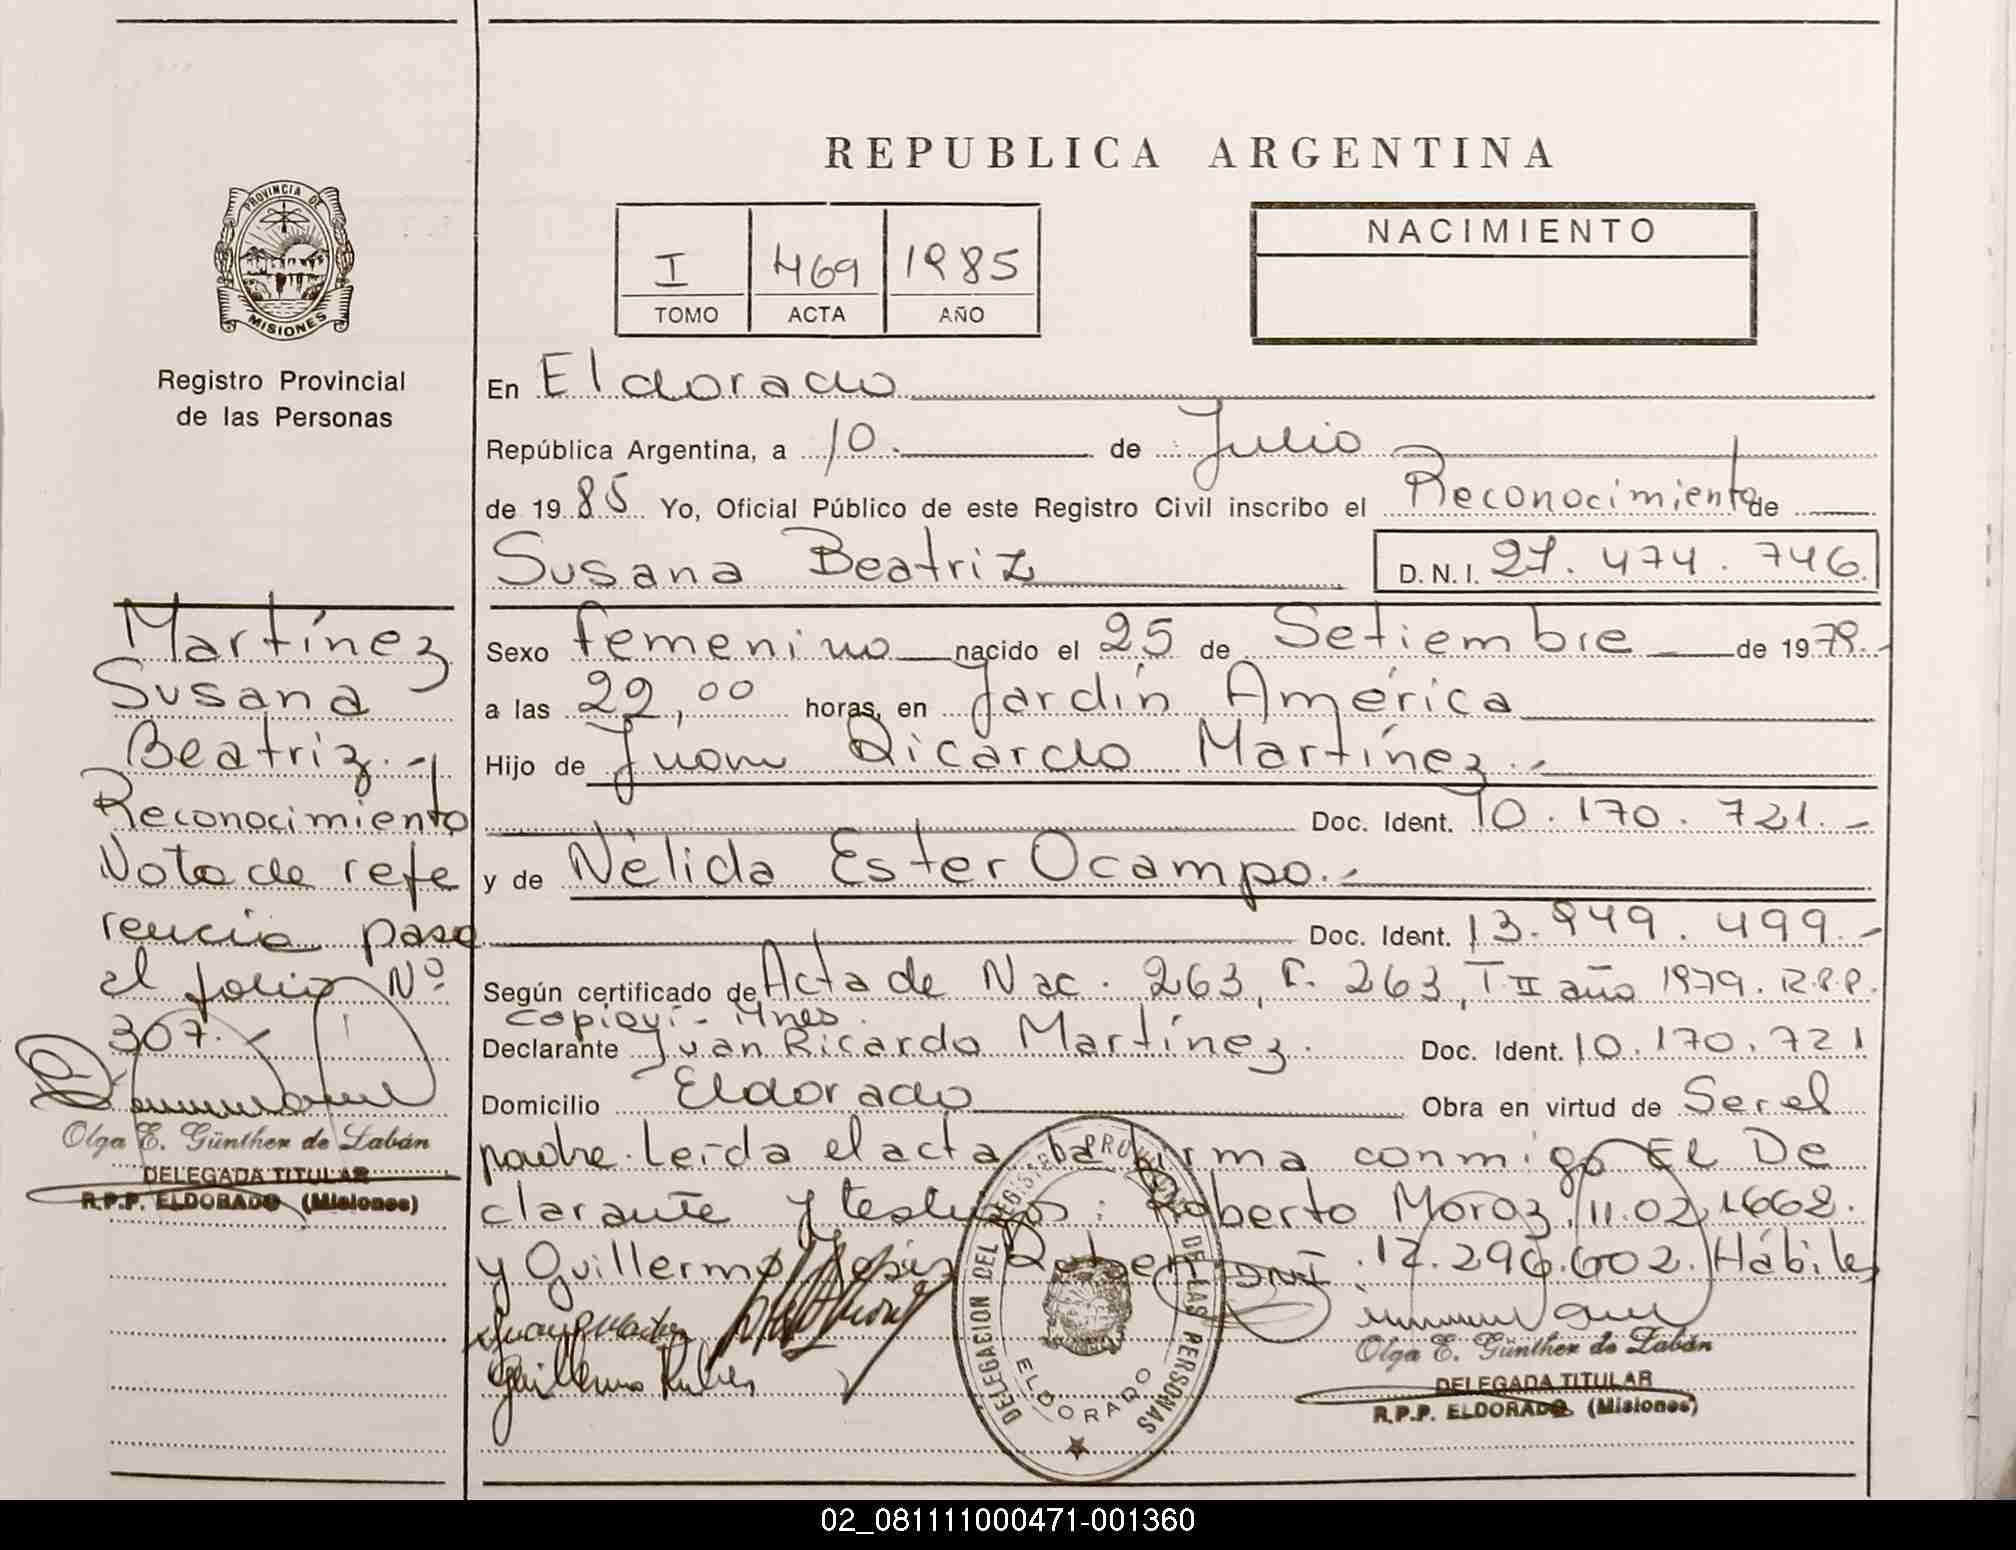 REPUBLICA ARGENTINA
PROVINCIA DE
MISIONES
Registro Provincial
de las Personas
I 469 1985
TOMO ACTA AÑO
NACIMIENTO
En Eldorado
República Argentina, a 10.- de Julio
de 19 85 Yo, Oficial Público de este Registro Civil inscribo el Reconocimiento de
Susana Beatriz D.N.I. 27.474.746
Sexo femenino nacido el 25 de Setiembre de 1979.-
a las 22,00 horas, en Jardín América
Hijo de Juan Ricardo Martínez.-
Doc. Ident. 10.170.721.-
y de Nélida Ester Ocampo.-
Doc. Ident. 13.949.499.-
Según certificado de Acta de Nac. 263, F. 263, T II año 1979. R.P.P.
Capioví - Mnes.
Declarante Juan Ricardo Martínez. Doc. Ident. 10.170.721
Domicilio Eldorado Obra en virtud de Ser el
padre. Leída el acta la firma conmigo El De
clarante y testigos: Roberto Moroz, 11.02,1662.
y Guillermo Jesús DNI. 17.296.602. Hábiles
Guillermo
Olga E. Günther de Labán
DELEGADA TITULAR
R.P.P. ELDORADO (Misiones)
DELEGACION DEL REGISTRO PROVINCIAL DE LAS PERSONAS
ELDORADO
Martínez
Susana
Beatriz.-
Reconocimiento
Nota de refe
rencia pasa
al folio Nº
307.-
Olga E. Günther de Labán
DELEGADA TITULAR
R.P.P. ELDORADO (Misiones)
02_081111000471-001360